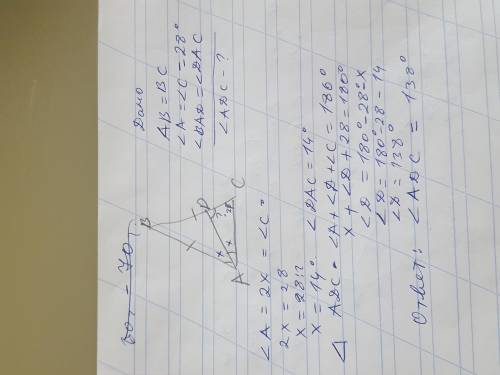 Дано
AB = BC
∠A = ∠C = 28°
∠BAD = ∠DAC
∠ADC - ?
B
D
C
A
x
x
?
28
∠A = 2x = ∠C =
2x = 28
x = 28:2
x = 14° ∠DAC = 14°
△ ADC = ∠A + ∠D + ∠C = 180°
x + ∠D + 28 = 180°
∠D = 180° - 28° - x
∠D = 180° - 28 - 14
∠D = 138°
Ответ: ∠ADC = 138°